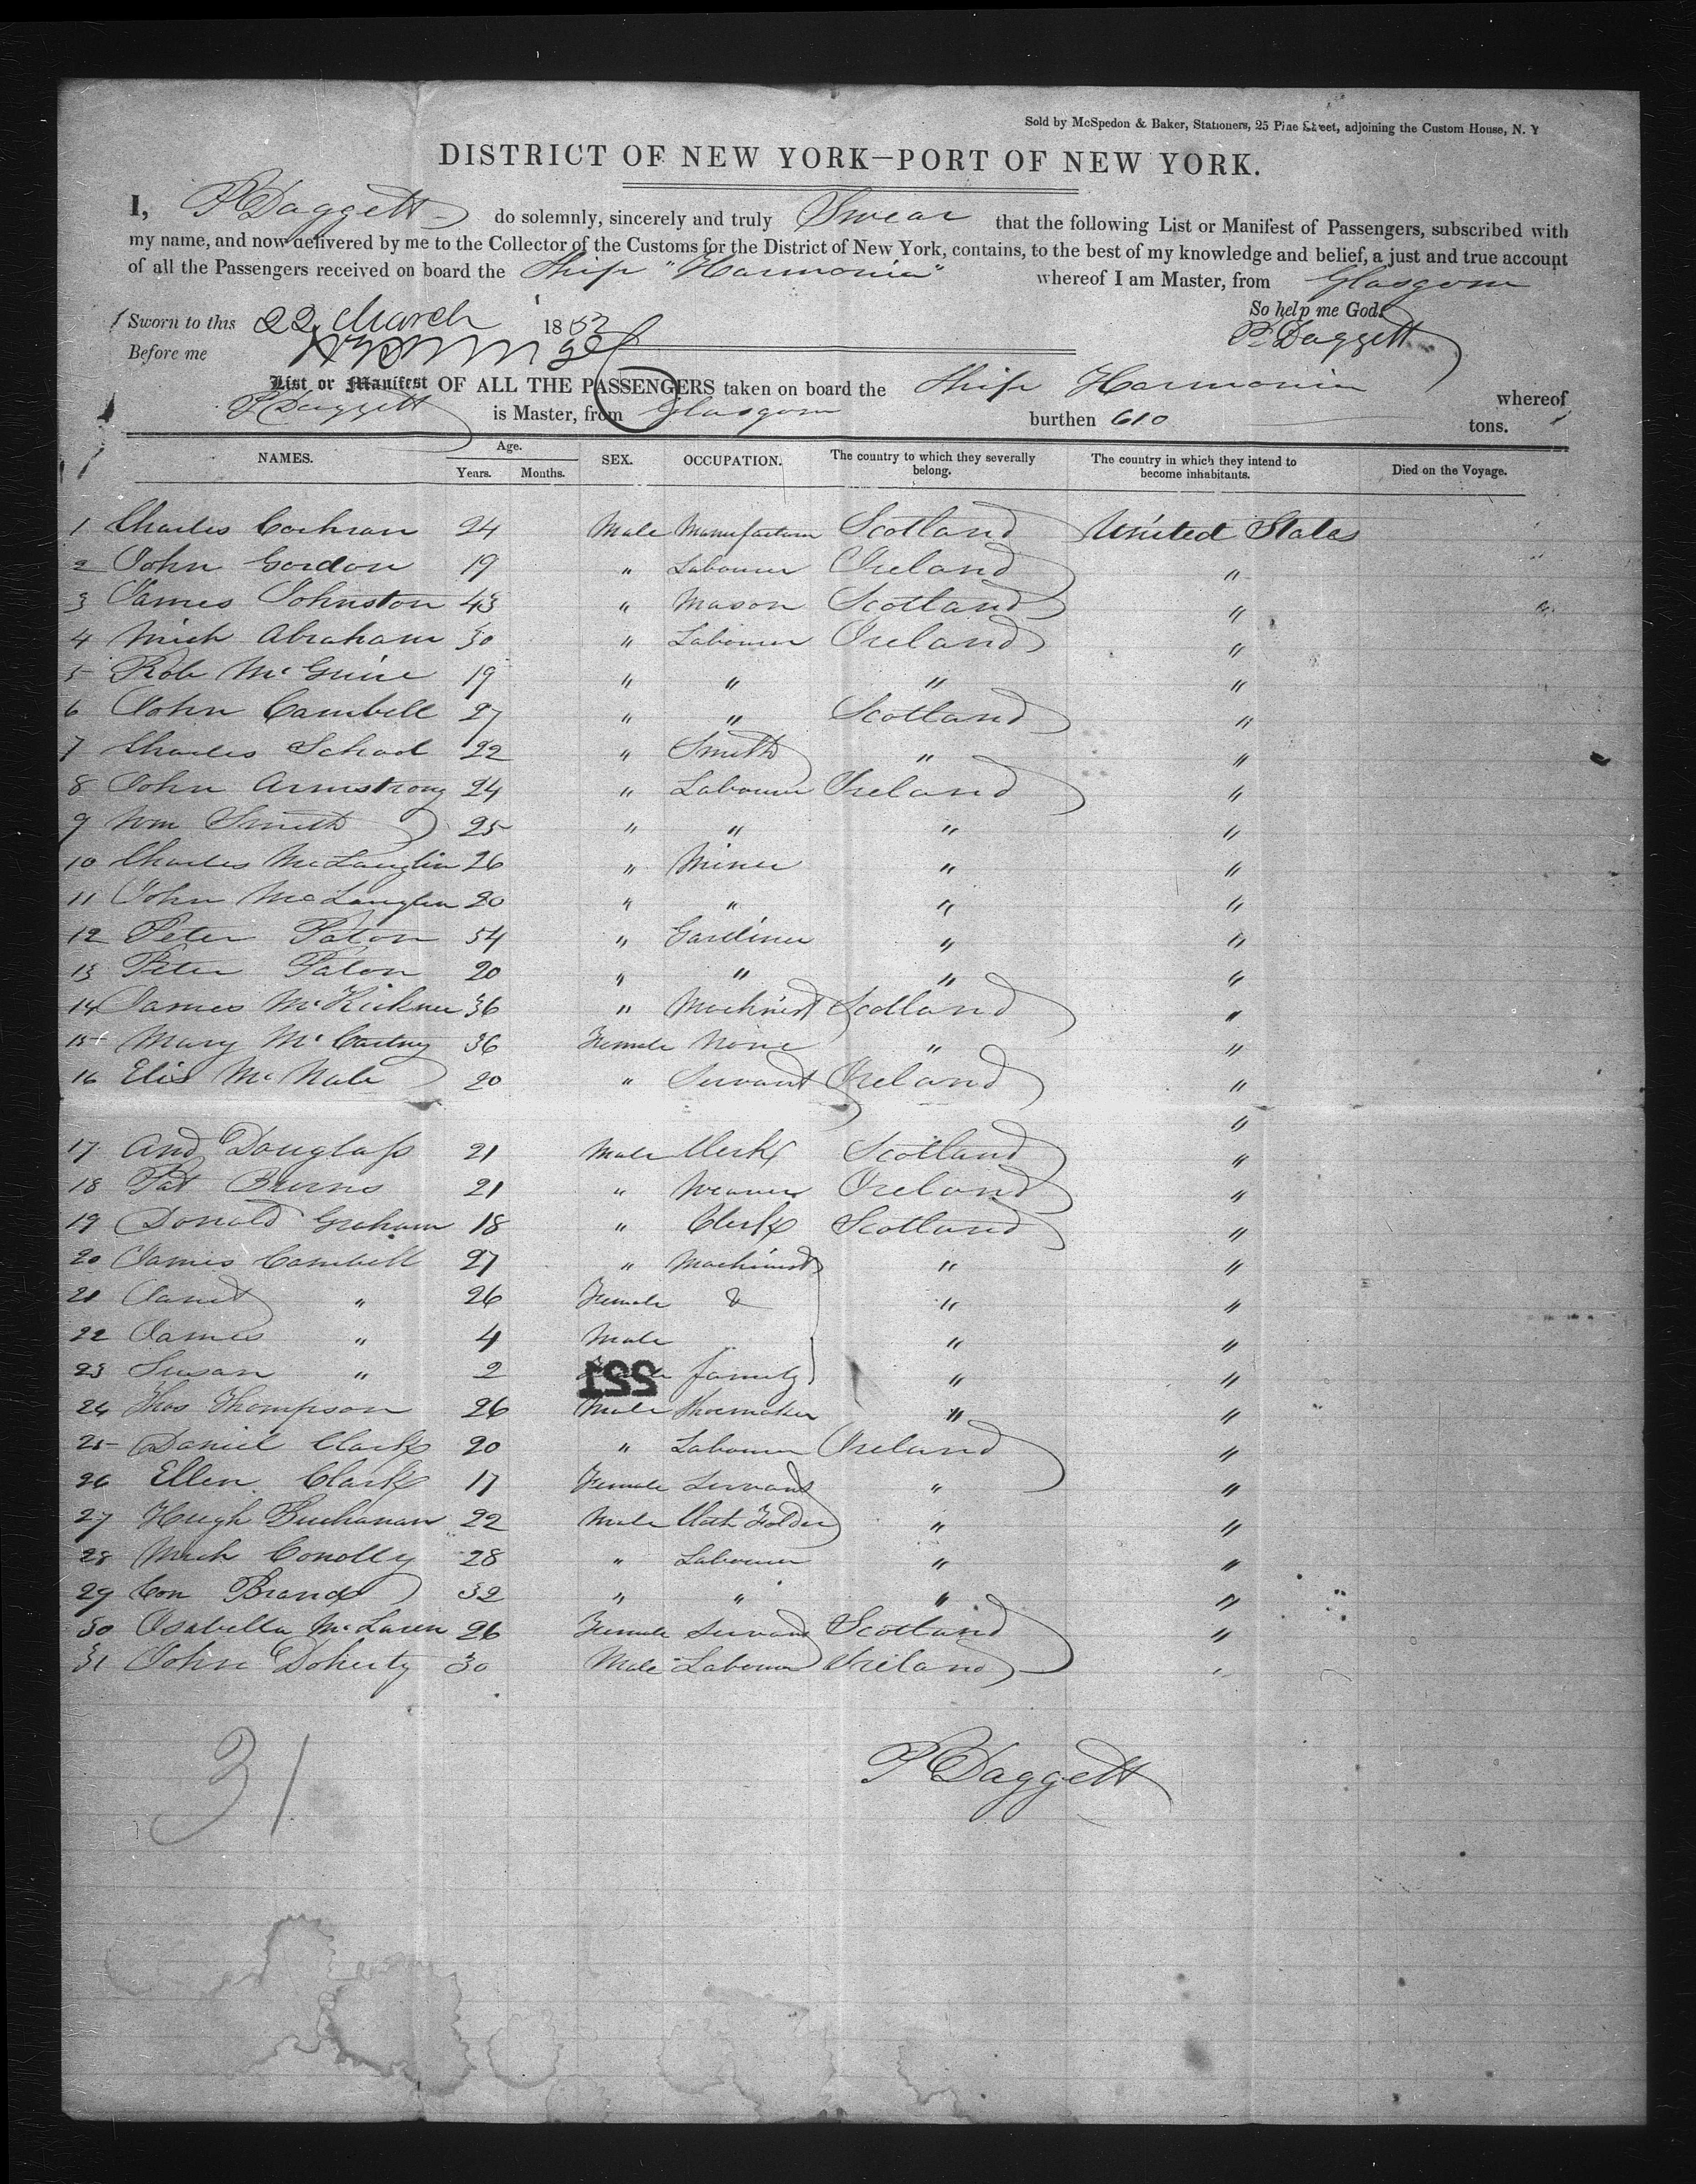 Sold by McSpedon & Baker, Stationers, 25 Pine Street, adjoining the Custom House, N. Y
DISTRICT OF NEW YORK—PORT OF NEW YORK.
I, P Daggett do solemnly, sincerely and truly Swear that the following List or Manifest of Passengers, subscribed with
my name, and now delivered by me to the Collector of the Customs for the District of New York, contains, to the best of my knowledge and belief, a just and true account
of all the Passengers received on board the Ship "Harmonia" whereof I am Master, from Glasgow
So help me God.
Sworn to this 22 March 1852
P Daggett
Before me
List or Manifest OF ALL THE PASSENGERS taken on board the Ship Harmonia whereof
P Daggett is Master, from Glasgow burthen 610 tons.
NAMES. Age. Years. Months. SEX. OCCUPATION. The country to which they severally belong. The country in which they intend to become inhabitants. Died on the Voyage.
1 Charles Cochran 24 Male Manufacturer Scotland United States
2 John Gordon 19 " Labourer Ireland "
3 James Johnston 43 " Mason Scotland "
4 Mich Abraham 30 " Labourer Ireland "
5 Rob McGuire 19 " " " "
6 John Cambell 27 " " Scotland "
7 Charles Schad 22 " Smith " "
8 John Armstrong 24 " Labourer Ireland "
9 Wm Smith 25 " " " "
10 Charles McLauglin 26 " Miner " "
11 John McLauglin 20 " " " "
12 Peter Paton 54 " Gardiner " "
13 Peter Paton 20 " " " "
14 James 36 " Machinist Scotland "
15 Mary McCartny 36 Female None " "
16 Elis McNale 20 " Servant Ireland "
"
17 And Douglass 21 Male Clerk Scotland "
18 Pat Burns 21 " Weaver Ireland "
19 Donald Graham 18 " Clerk Scotland "
20 James Cambell 27 " Machinist " "
21 Janet " 26 Female & " "
22 James " 4 Male " "
23 Susan " 2 family " "
221
24 Thos Thompson 26 Male Shoemaker " "
25 Daniel Clark 20 " Labourer Ireland "
26 Ellen Clark 17 Female Servant " "
27 Hugh Buchanan 22 Male Cloth Folder " "
28 Mich Conolly 28 " Labourer " "
29 Con 32 " " " "
30 Isabella McLaren 26 Female Servant Scotland "
31 John Doherty 30 Male Labourer Ireland "
31
P Daggett